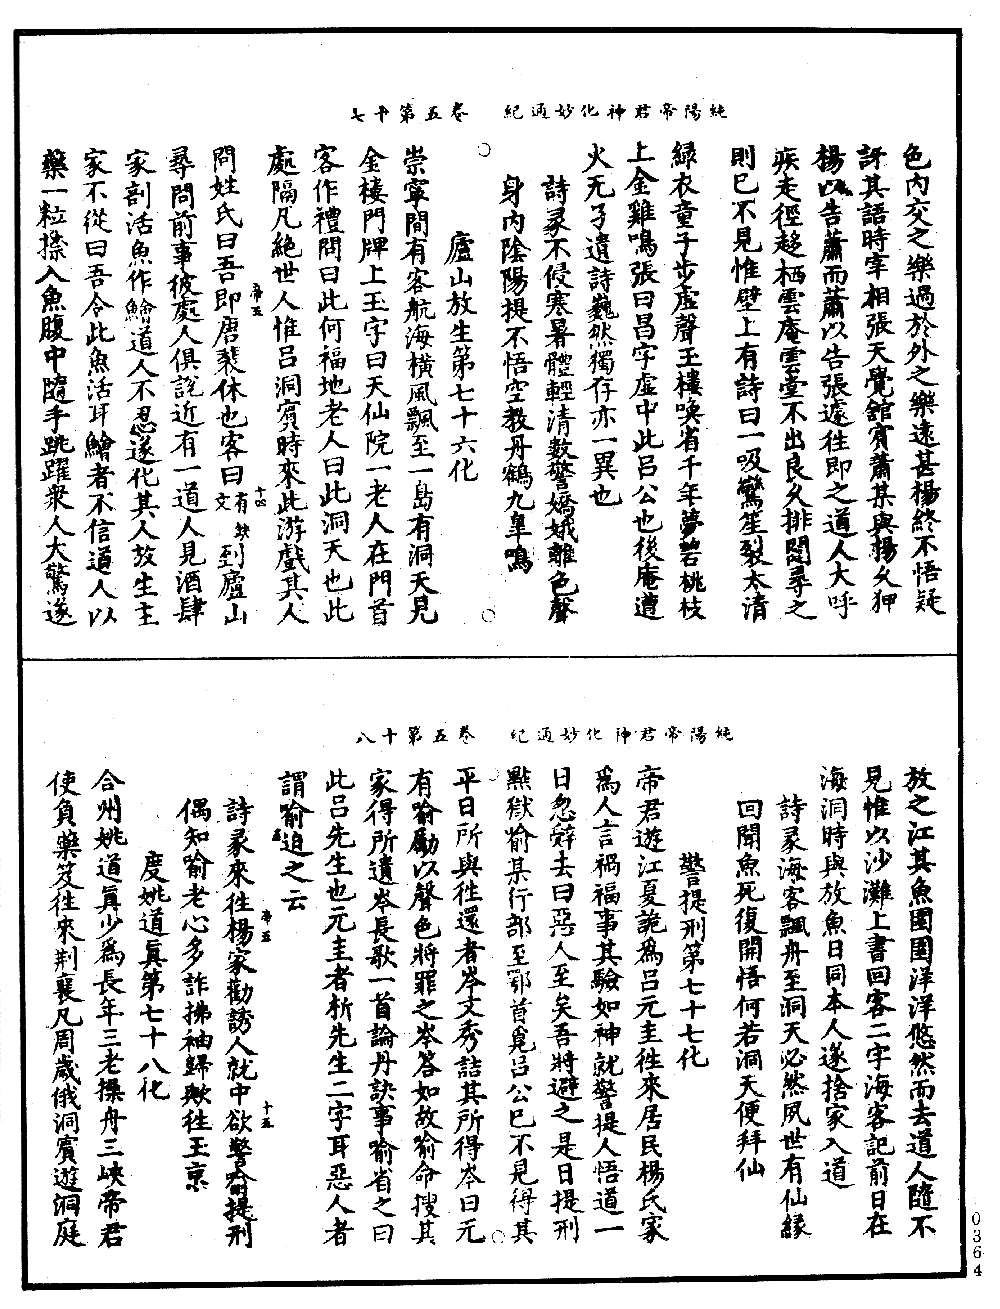 純陽帝君神化妙通紀　卷五第十七
色內交之樂過於外之樂遠甚楊終不悟疑
訝其語時宰相張天覺館賓蕭某與楊久狎
楊以告蕭而蕭以告張遽往即之道人大呼
疾走徑趍栖雲庵雲堂不出良久排闥尋之
則已不見惟壁上有詩曰一吸鸞笙裂太清
綠衣童子步虛聲玉樓喚省千年夢碧桃枝
上金雞鳴張曰昌字虛中此吕公也後庵遭
火无孑遺詩巍然獨存亦一異也
詩彔不侵寒暑體輕清數警嬌娥離色聲
身內陰陽提不悟空教丹鶴九臯鳴
廬山放生第七十六化
崇寧間有客航海橫風飄至一島有洞天見
金樓門牌上玉字曰天仙院一老人在門首
客作禮問曰此何福地老人曰此洞天也此
處隔凡絕世人惟吕洞賓時來此游戲其人
問姓氏曰吾即唐裴休也客曰有缺文到廬山
尋問前事彼處人俱說近有一道人見酒肆
家剖活魚作鱠道人不忍遂化其人放生主
家不從曰吾令此魚活耳鱠者不信道人以
藥一粒搽入魚腹中隨手跳躍衆人大驚遂
帝五
十四
純陽帝君神化妙通紀　卷五第十八
放之江其魚圉圉洋洋悠然而去道人隨不
見惟以沙灘上書回客二字海客記前日在
海洞時與放魚日同本人遂捨家入道
詩彔海客飄舟至洞天必然夙世有仙緣
回聞魚死復開悟何若洞天便拜仙
警提刑第七十七化
帝君遊江夏詭爲吕元圭徃來居民楊氏家
爲人言禍福事其驗如神就警提人悟道一
日忽辭去曰惡人至矣吾將避之是日提刑
點獄喻某行部至鄂首覓吕公已不見得其
平日所與徃還者岑文秀詰其所得岑曰元
有喻勵以聲色將罪之岑答如故喻命搜其
家得所遺岑長歌一首論丹訣事喻省之曰
此吕先生也元圭者析先生二字耳惡人者
謂喻迫之云
詩彔來徃楊家勸誘人就中欲警喻提刑
偶知喻老心多詐拂袖歸歟徃玉京
度姚道眞第七十八化
合州姚道眞少爲長年三老操舟三峽帝君
使負藥笈徃來荆襄凡周歲俄洞賓遊洞庭
帝五
十五
0364